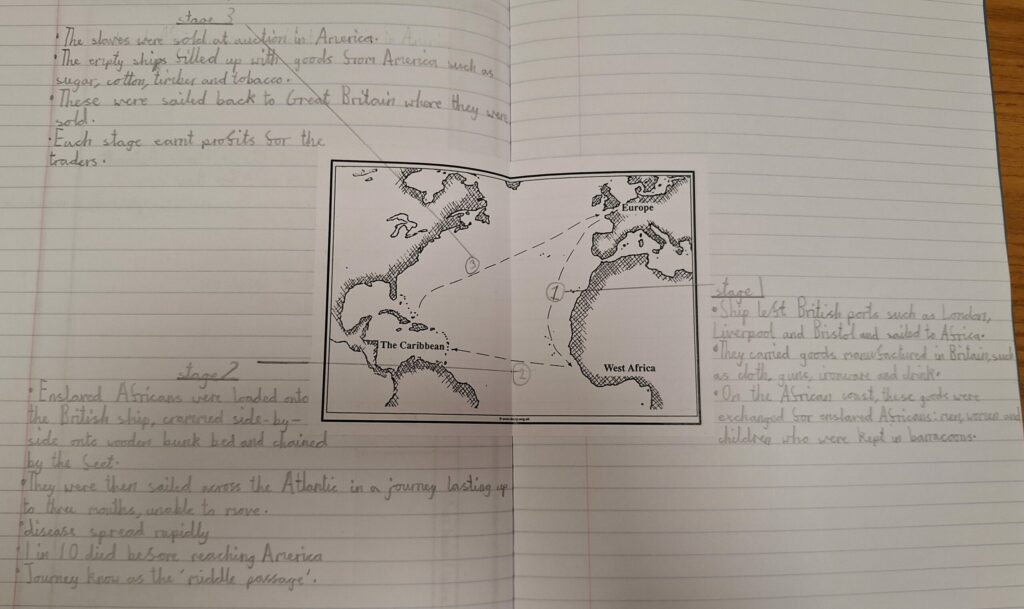 stage 3
• The slaves were sold at auction in America.
• The empty ships filled up with goods from America such as
sugar, cotton, timber and tobacco.
• These were sailed back to Great Britain where they were
sold.
• Each stage earnt profits for the
traders.
Europe
3
1
The Caribbean
2
West Africa
stage 1
• Ship left British ports such as London,
Liverpool and Bristol and sailed to Africa.
• They carried goods manufactured in Britain, such
as cloth, guns, ironware and drink.
• On the African coast, these goods were
exchanged for enslaved Africans: men, women and
children who were kept in barracoons.
stage 2
• Enslaved Africans were loaded onto
the British ship, crammed side-by-
side onto wooden bunk bed and chained
by the feet.
• They were then sailed across the Atlantic in a journey lasting up
to three months, unable to move.
• disease spread rapidly
• 1 in 10 died before reaching America
• Journey know as the 'middle passage'.